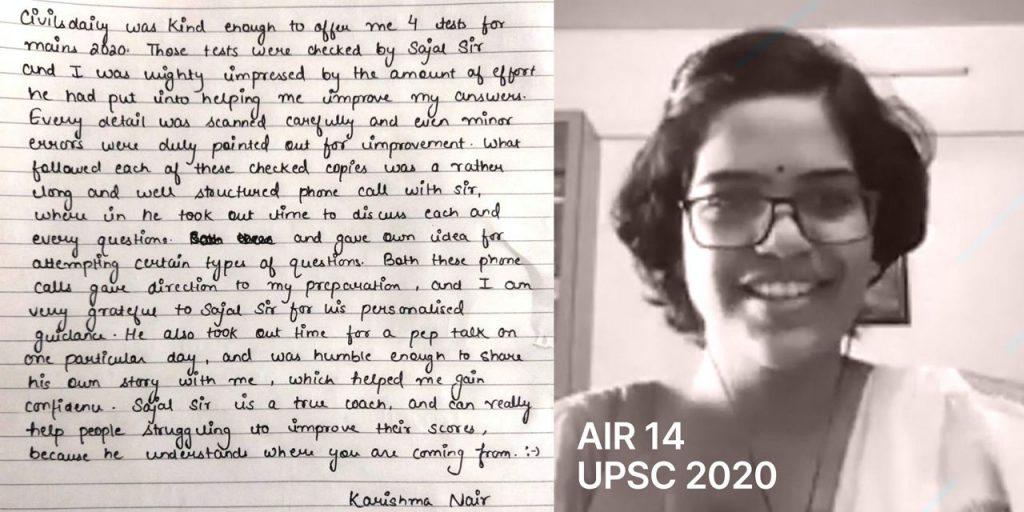 Civilsdaily was kind enough to offer me 4 tests for
mains 2020. Those tests were checked by Sajal Sir
and I was mighty impressed by the amount of effort
he had put into helping me improve my answers.
Every detail was scanned carefully and even minor
errors were duly pointed out for improvement. What
followed each of these checked copies was a rather
long and well structured phone call with sir,
where in he took out time to discuss each and
every questions. and gave own idea for
attempting certain types of questions. Both these phone
calls gave direction to my preparation, and I am
very grateful to Sajal Sir for his personalised
guidance. He also took out time for a pep talk on
one particular day, and was humble enough to share
his own story with me, which helped me gain
confidence. Sajal Sir is a true coach, and can really
help people struggling to improve their scores,
because he understands where you are coming from. :-)
Karishma Nair
AIR 14
UPSC 2020